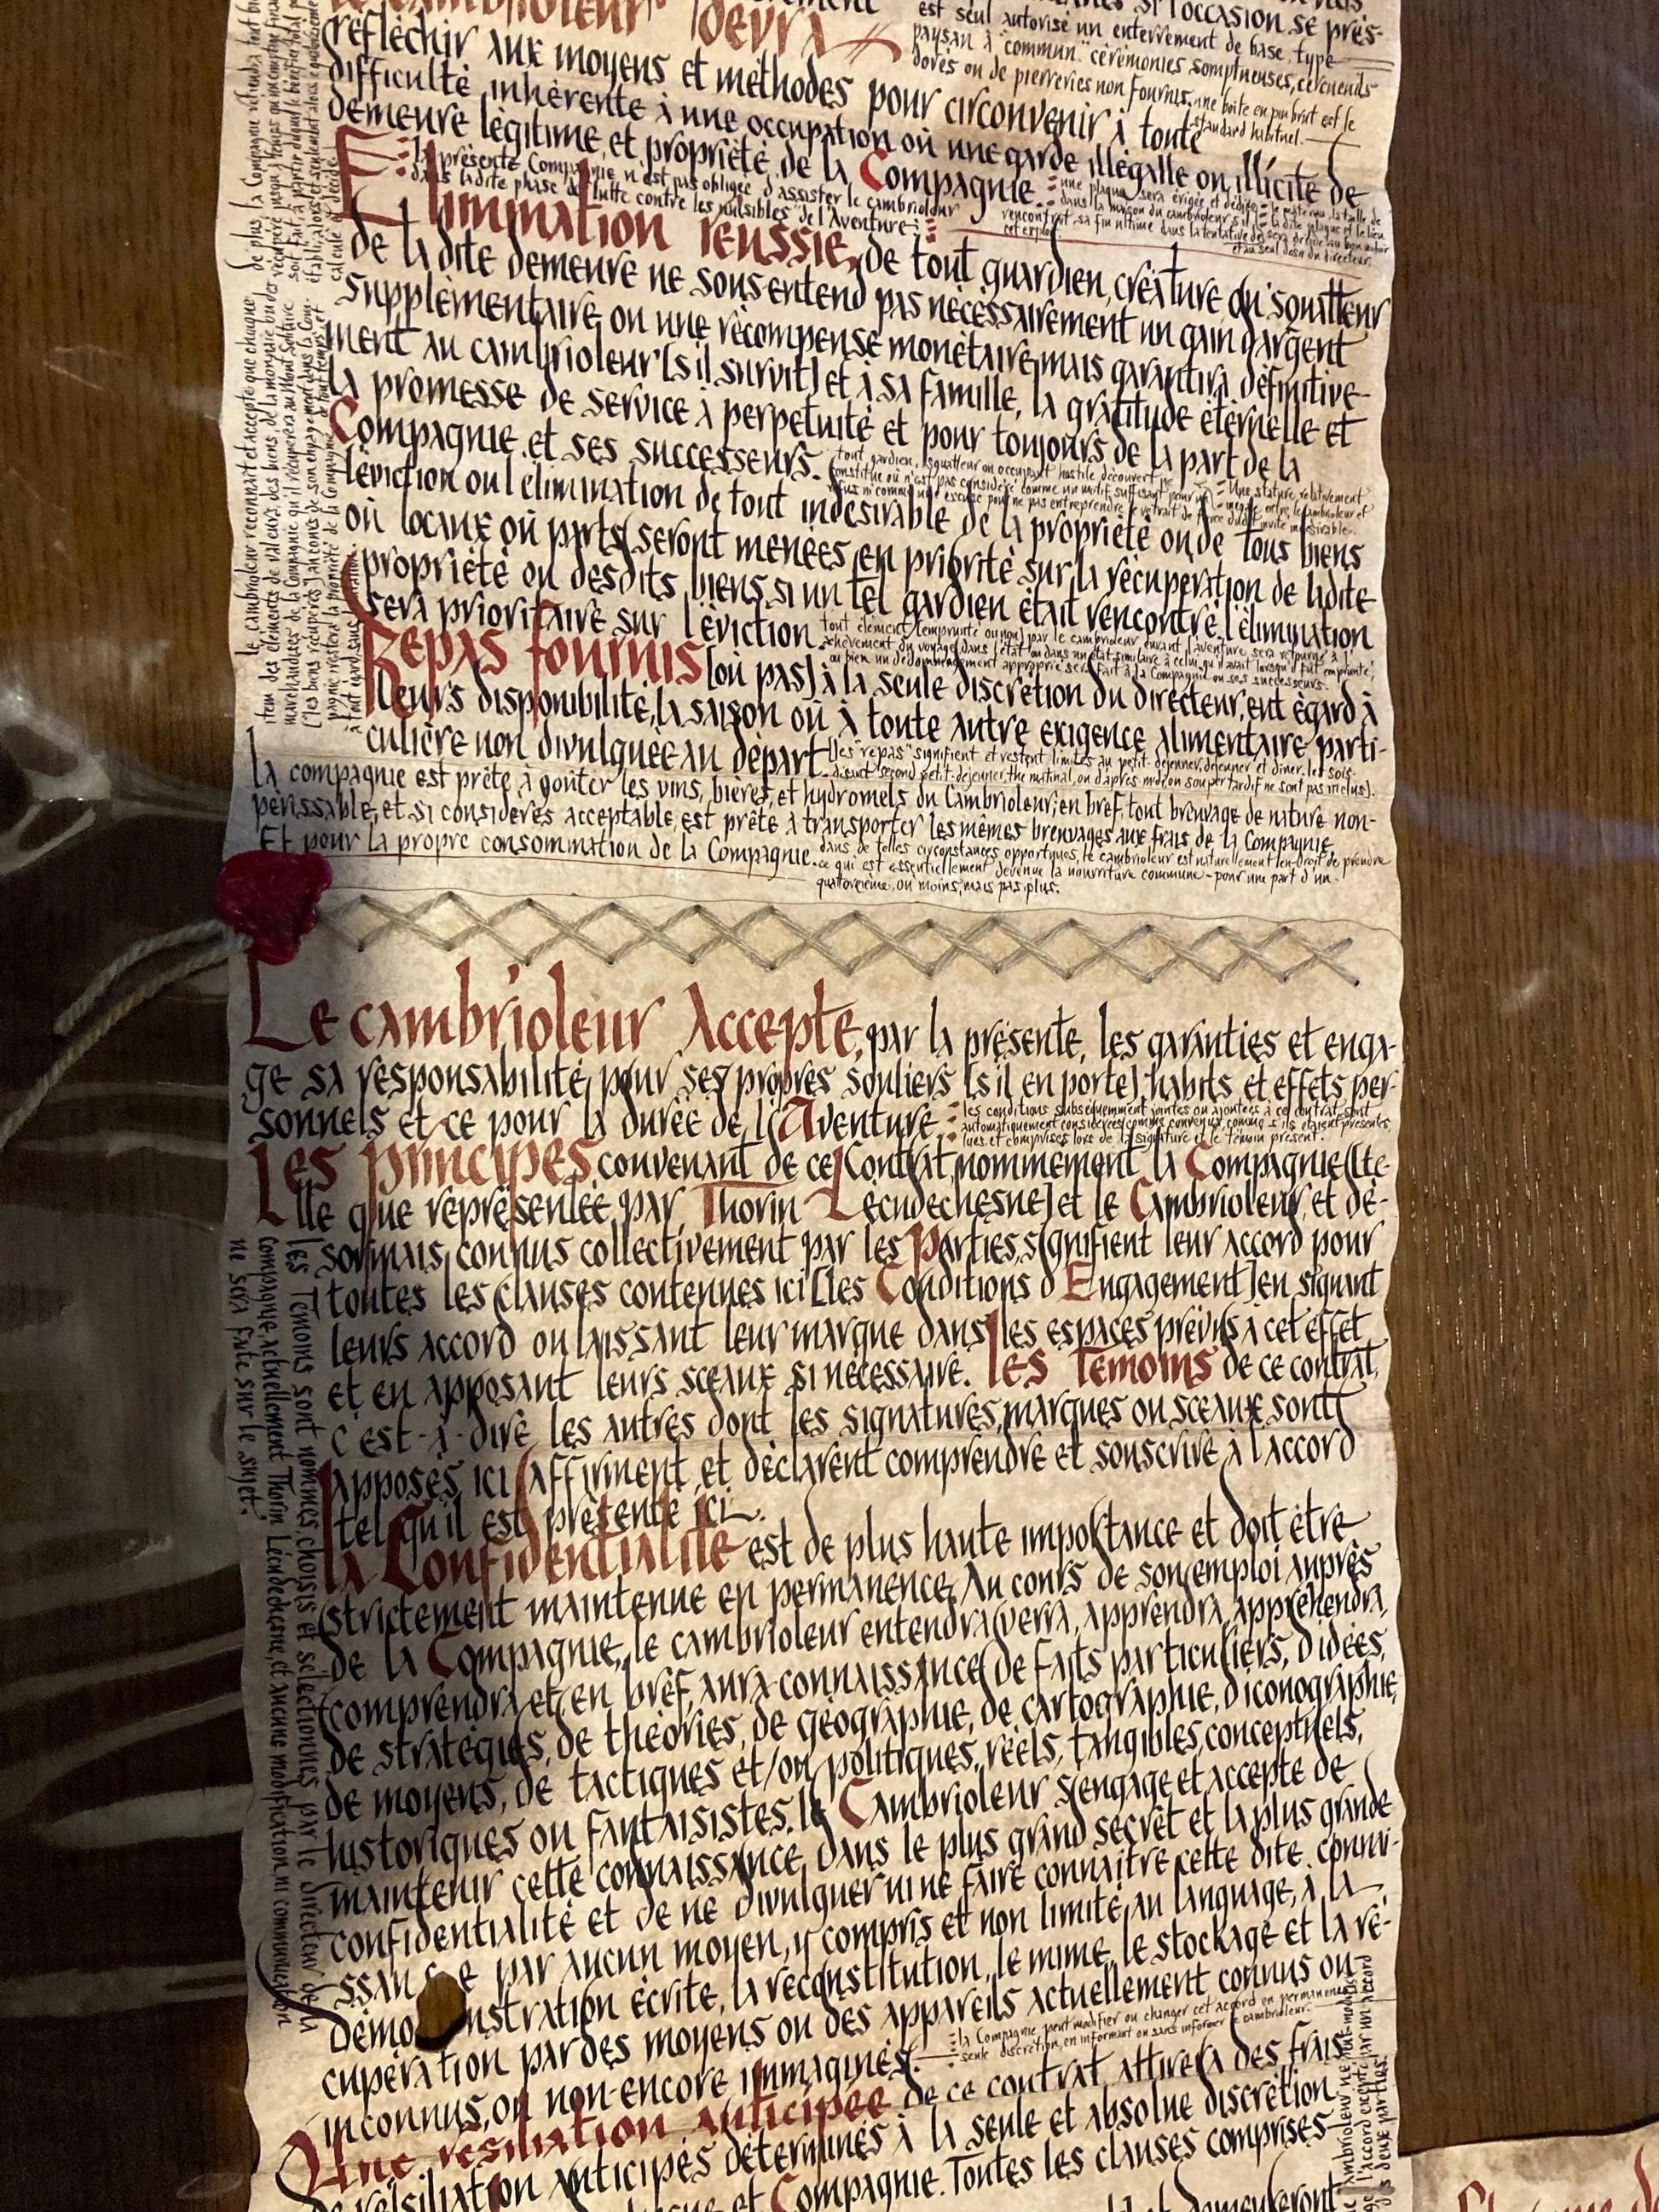 le cambrioleur devra
réfléchir aux moyens et méthodes pour circonvenir à toute
difficulté inhérente à une occupation ou une garde illégalle ou illicite de
demeure légitime, et propriété de la Compagnie.
si l'occasion se prés-
est seul autorisé un enterrement de base, type
paysan à "commun". cérémonies somptueuses, cercueils
dorés ou de pierreries non fournis, une boîte en pin brut est le
standard habituel.
la présente Compagnie n'est pas obligée d'assister le cambrioleur
dans ladite phase de "lutte contre les nuisibles" de l'Aventure:
une plaque sera érigée et dédiée
dans la maison du cambrioleur s'il
rencontrait sa fin ultime dans la tentative de
cet exploit
et au seul desin du directeur.
Elimination réussie, de tout guardien, créature ou squatteur
de la dite demeure ne sousentend pas nécessairement un gain d'argent
supplémentaire ou une récompense monétaire, mais garantira définitive-
ment au cambrioleur [s'il survit] et à sa famille, la gratitude éternelle et
la promesse de service à perpétuité et pour toujours de la part de la
Compagnie et ses successeurs.
tout gardien, squatteur ou occupant hostile découvert ne
constitue ou n'est pas considéré comme un motif suffisant pour un
refus ni comme une excuse pour ne pas entreprendre le retrait de force dudit invité indésirable.
Une stature relativement
inégale entre le cambrioleur et
L'éviction ou l'élimination de tout indésirable de la propriété ou de tous biens
ou locaux ou parts seront menées en priorité sur la récupération de ladite
propriété ou desdits biens, si un tel gardien était rencontré. L'élimination
sera prioritaire sur l'éviction.
tout élément [emprunté ou non] par le cambrioleur durant l'aventure sera retourné à l'
achèvement du voyage dans l'état ou dans un état similaire à celui qu'il avait lorsqu'il fut emprunté,
ou bien un dédommagement approprié sera fait à la Compagnie ou ses successeurs.
Repas fournis [ou pas] à la seule discrétion du directeur, eut égard à
leurs disponibilité, la saison ou à toute autre exigence alimentaire parti-
culière non divulguée au départ.
[les "repas" signifient et restent limités au petit-déjeuner, déjeuner et dîner. les sois-
disant second petit-déjeuner, thé matinal, ou d'après-midi, ou souper tardif ne sont pas inclus].
la compagnie est prête à goûter les vins, bières, et hydromels du Cambrioleur; en bref, tout breuvage de nature non-
périssable, et si considérés acceptable, est prête à transporter les mêmes breuvages aux frais de la Compagnie,
Et pour la propre consommation de la Compagnie.
dans de telles circonstances opportunes, le cambrioleur est naturellement en droit de prendre
ce qui est essentiellement devenue la nourriture commune - pour une part d'un
quatorzième, ou moins, mais pas plus.
le cambrioleur reconnait et accepte que chaque
item des éléments de valeurs, des biens, de la monnaie ou des
marchandises de la Compagnie qu'il récupérera au Mont Solitaire
["les biens récupérés"] au cours de son engagement dans la Com-
pagnie restera la propriété de la Compagnie de tout temps, et
à tout égard, sans limitation.
Le cambrioleur Accepte, par la présente, les garanties et enga-
ge sa responsabilité, pour ses propres souliers [s'il en porte], habits et effets per-
sonnels et ce pour la durée de l'Aventure.
les conditions subséquemment jointes ou ajoutées à ce contrat sont
automatiquement considérées comme convenues comme si ils étaient présentes,
lues et comprises lors de la signature et le témoin présent.
Les principes convenant de ce Contrat, nommément la Compagnie [te-
lle que représentée par Thorin Lécudechesne] et le Cambrioleur, et dé-
sormais, connus collectivement par les Parties, signifient leur accord pour
toutes les clauses contenues ici [les Conditions d'Engagement] en signant
leurs accord ou laissant leur marque dans les espaces prévus à cet effet
et en apposant leurs sceaux si nécessaire. les Témoins de ce contrat,
c'est-à-dire les autres dont les signatures, marques ou sceaux sont
apposés ici affirment et déclarent comprendre et souscrire à l'accord
tel qu'il est présenté ici.
les Témoins sont nommés, choisis et sélectionnés par le directeur de la
compagnie, actuellement Thorin Lécudechesne, et aucune modification, ni communication
ne sera faite sur le sujet.
la Confidentialité est de plus haute importance et doit être
strictement maintenue en permanence. Au cours de son emploi auprès
de la Compagnie, le cambrioleur entendra, verra, apprendra, appréhendra,
comprendra et, en bref, aura connaissance de faits particuliers, d'idées,
de stratégies, de théories, de géographie, de cartographie, d'iconographie,
de moyens, de tactiques et/ou politiques, réels, tangibles, conceptuels,
historiques ou fantaisistes. le Cambrioleur s'engage et accepte de
maintenir cette connaissance dans le plus grand secret et la plus grande
confidentialité et de ne divulguer ni ne faire connaître cette dite connai-
ssance par aucun moyen, y compris et non limité, au language, à la
démonstration écrite, la reconstitution, le mime, le stockage et la ré-
cupération par des moyens ou des appareils actuellement connus ou
inconnus, ou non-encore immaginés.
la Compagnie peut modifier ou changer cet accord en permanence
seule discrétion, en informant ou sans informer le cambrioleur.
Une résiliation anticipée de ce contrat attirera des frais
de résiliation anticipés déterminés à la seule et absolue discrétion
et Compagnie. Toutes les clauses comprises
demeureront